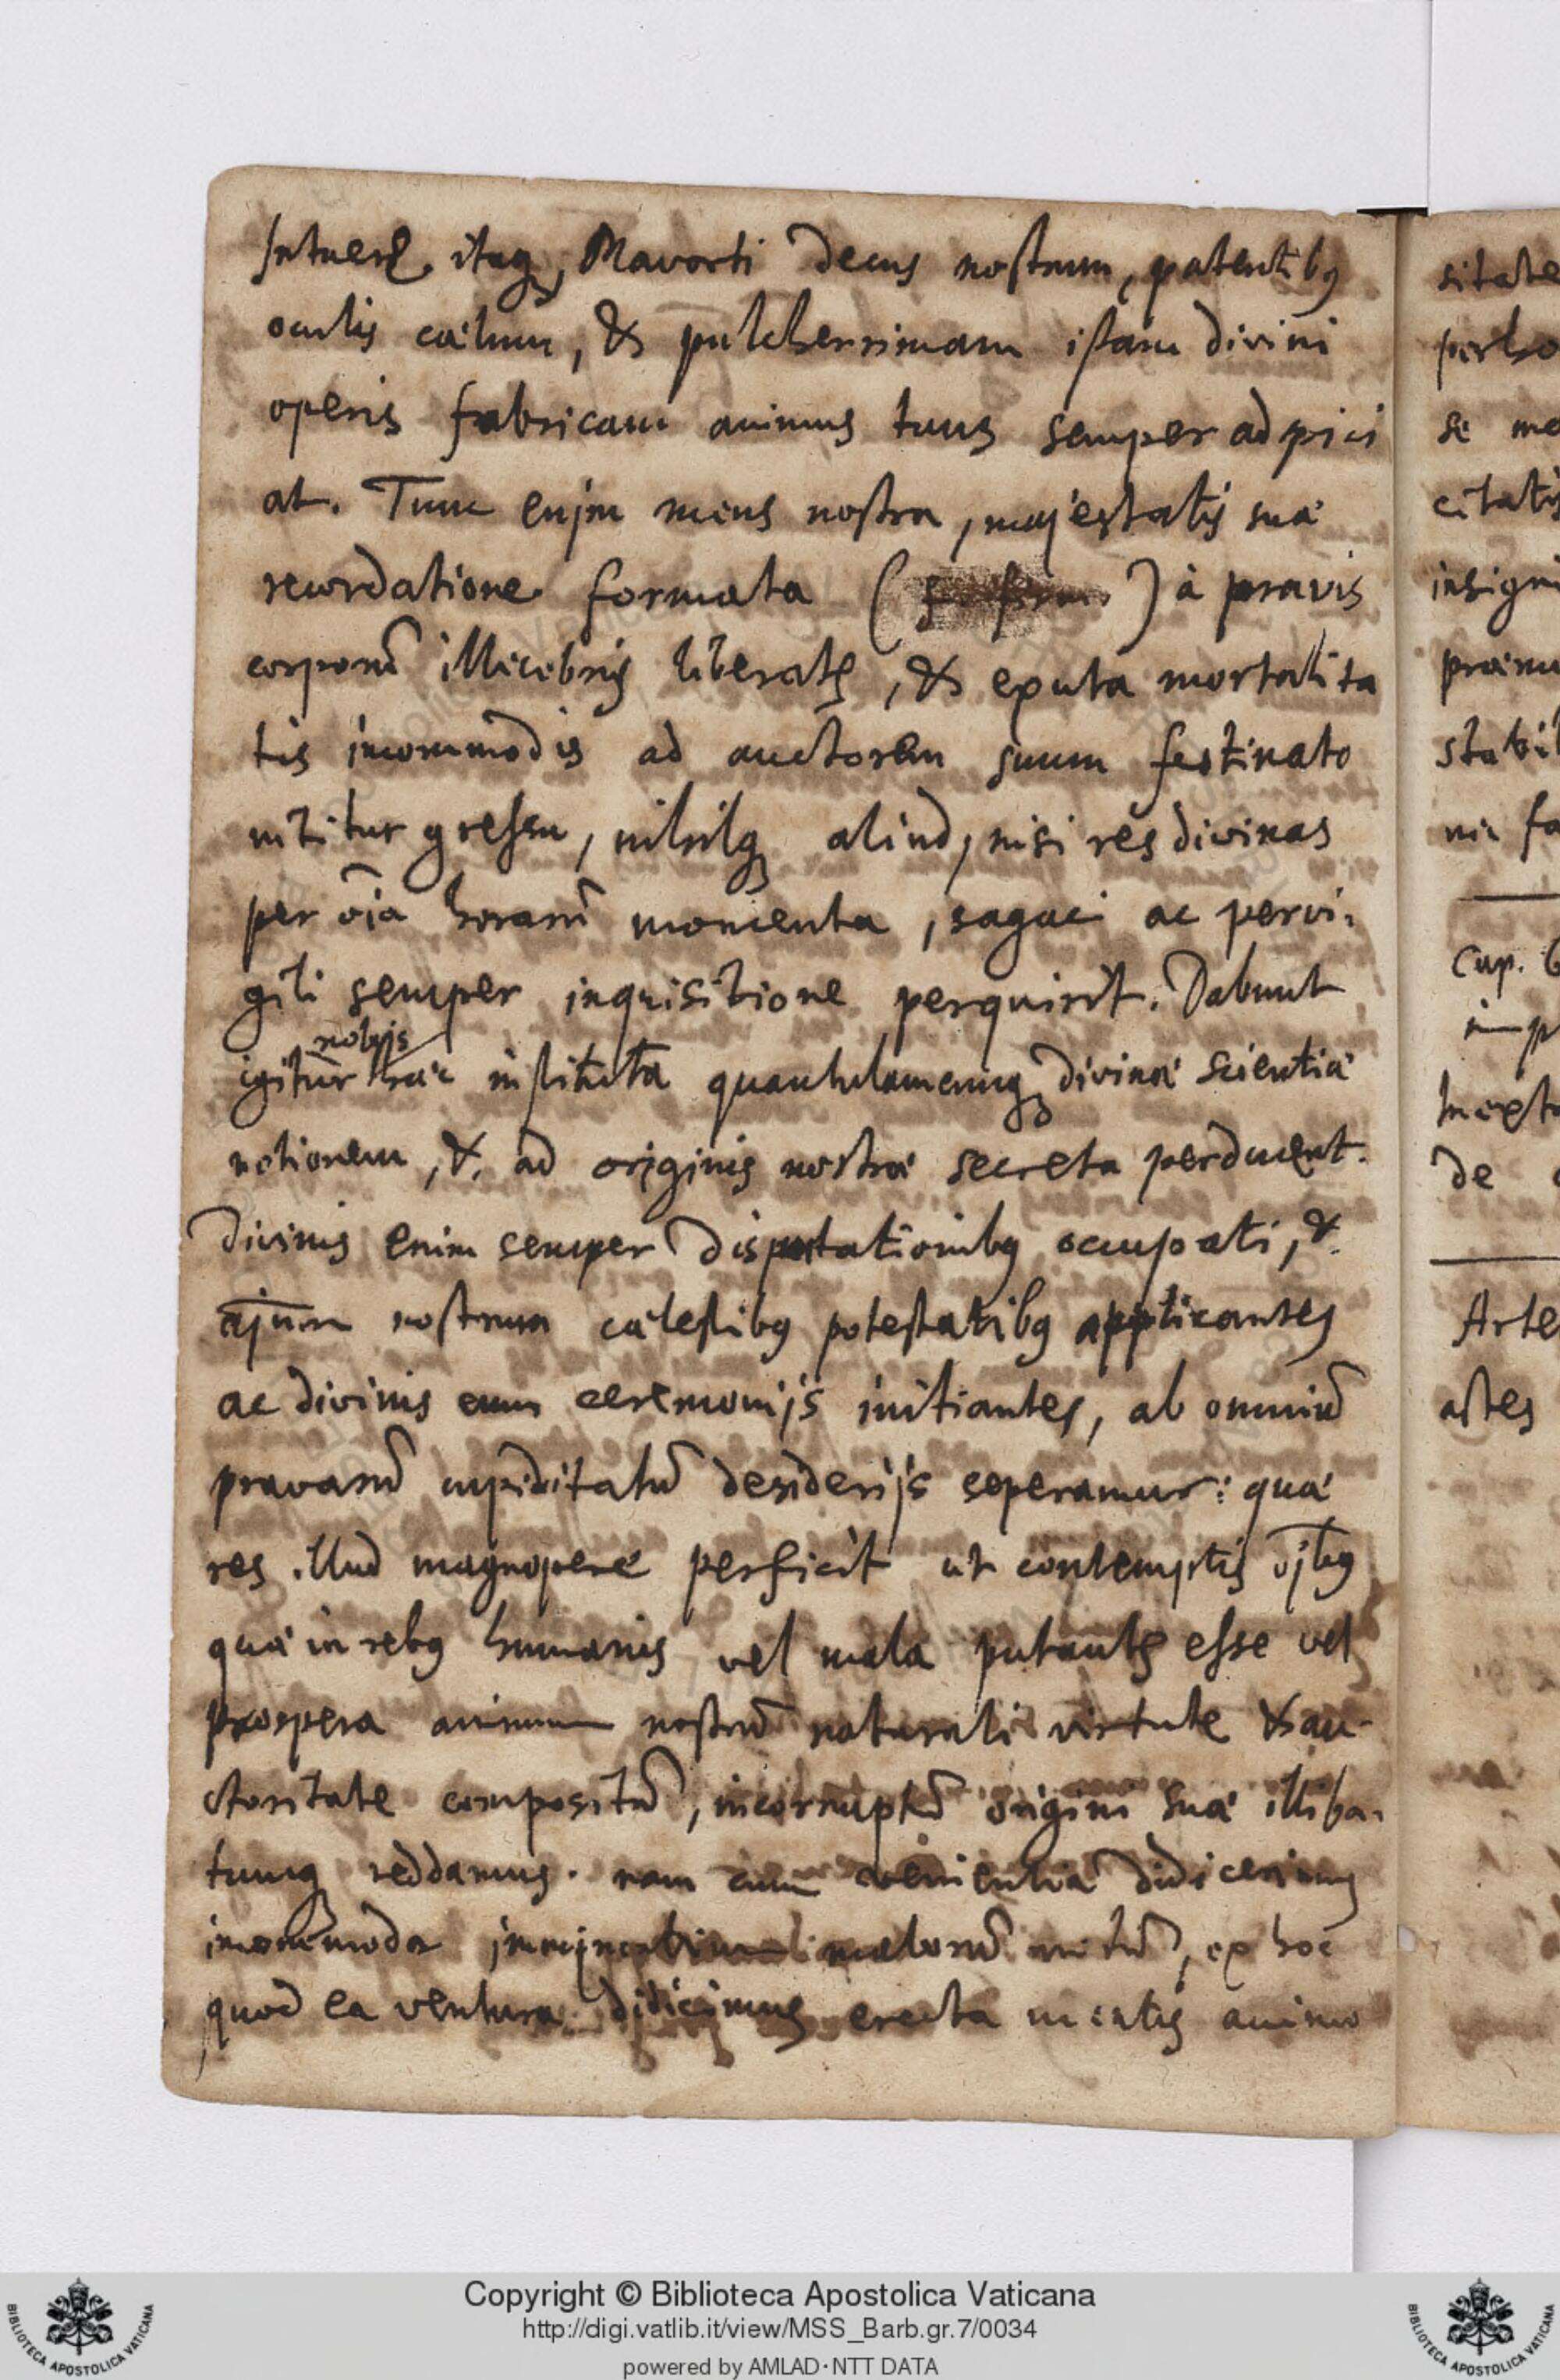 Intuere itaq, Mavorti decus nostrum, patentibq
oculis cælum, & pulcherrimam istam divini
operis fabricam animus tuus semper adspici
at. Tunc enim mens nostra, majestatis suæ
recordatione formata ( ) à pravis
corporū illecebris liberata, & exuta mortalita
tis incommodis ad auctorem suum festinato
nititur gressu, nihilq aliud, nisi res divinas
per oīa horarū momenta, sagaci ac pervi:
gili semper inquisitione perquirit. Dabunt
nobis
igitur hæc instituta quantulamcunq divinæ scientiæ
notionem, & ad originis nostræ secreta perducent.
Divinis enim semper disputationibq occupati, &
aīum nostrum cælestibq potestatibq applicantes
ac divinis eum ceremonijs initiantes, ab omniū
pravarū cupiditatū desiderijs seperamur: quæ
res illud magnopere perficit ut contemptis oībq
quæ in rebq humanis vel mala putants esse vel
prospera animum nostrū naturali virtute & au-
ctoritate compositū, incorruptū origini suæ illiba-
tumq reddamus. nam cum didicerimus
incommoda imminentium malorū, ex hoc
quod ea ventura didicimus erecta mentis animo
sitate
perho
se me
citatis
insigni
præmu
stabil
nia fa
Cap. 6
imp
Inexto
de
Arte
astes
Copyright © Biblioteca Apostolica Vaticana
http://digi.vatlib.it/view/MSS_Barb.gr.7/0034
powered by AMLAD·NTT DATA
BIBLIOTECA APOSTOLICA VATICANA
BIBLIOTECA APOSTOLICA VATICANA